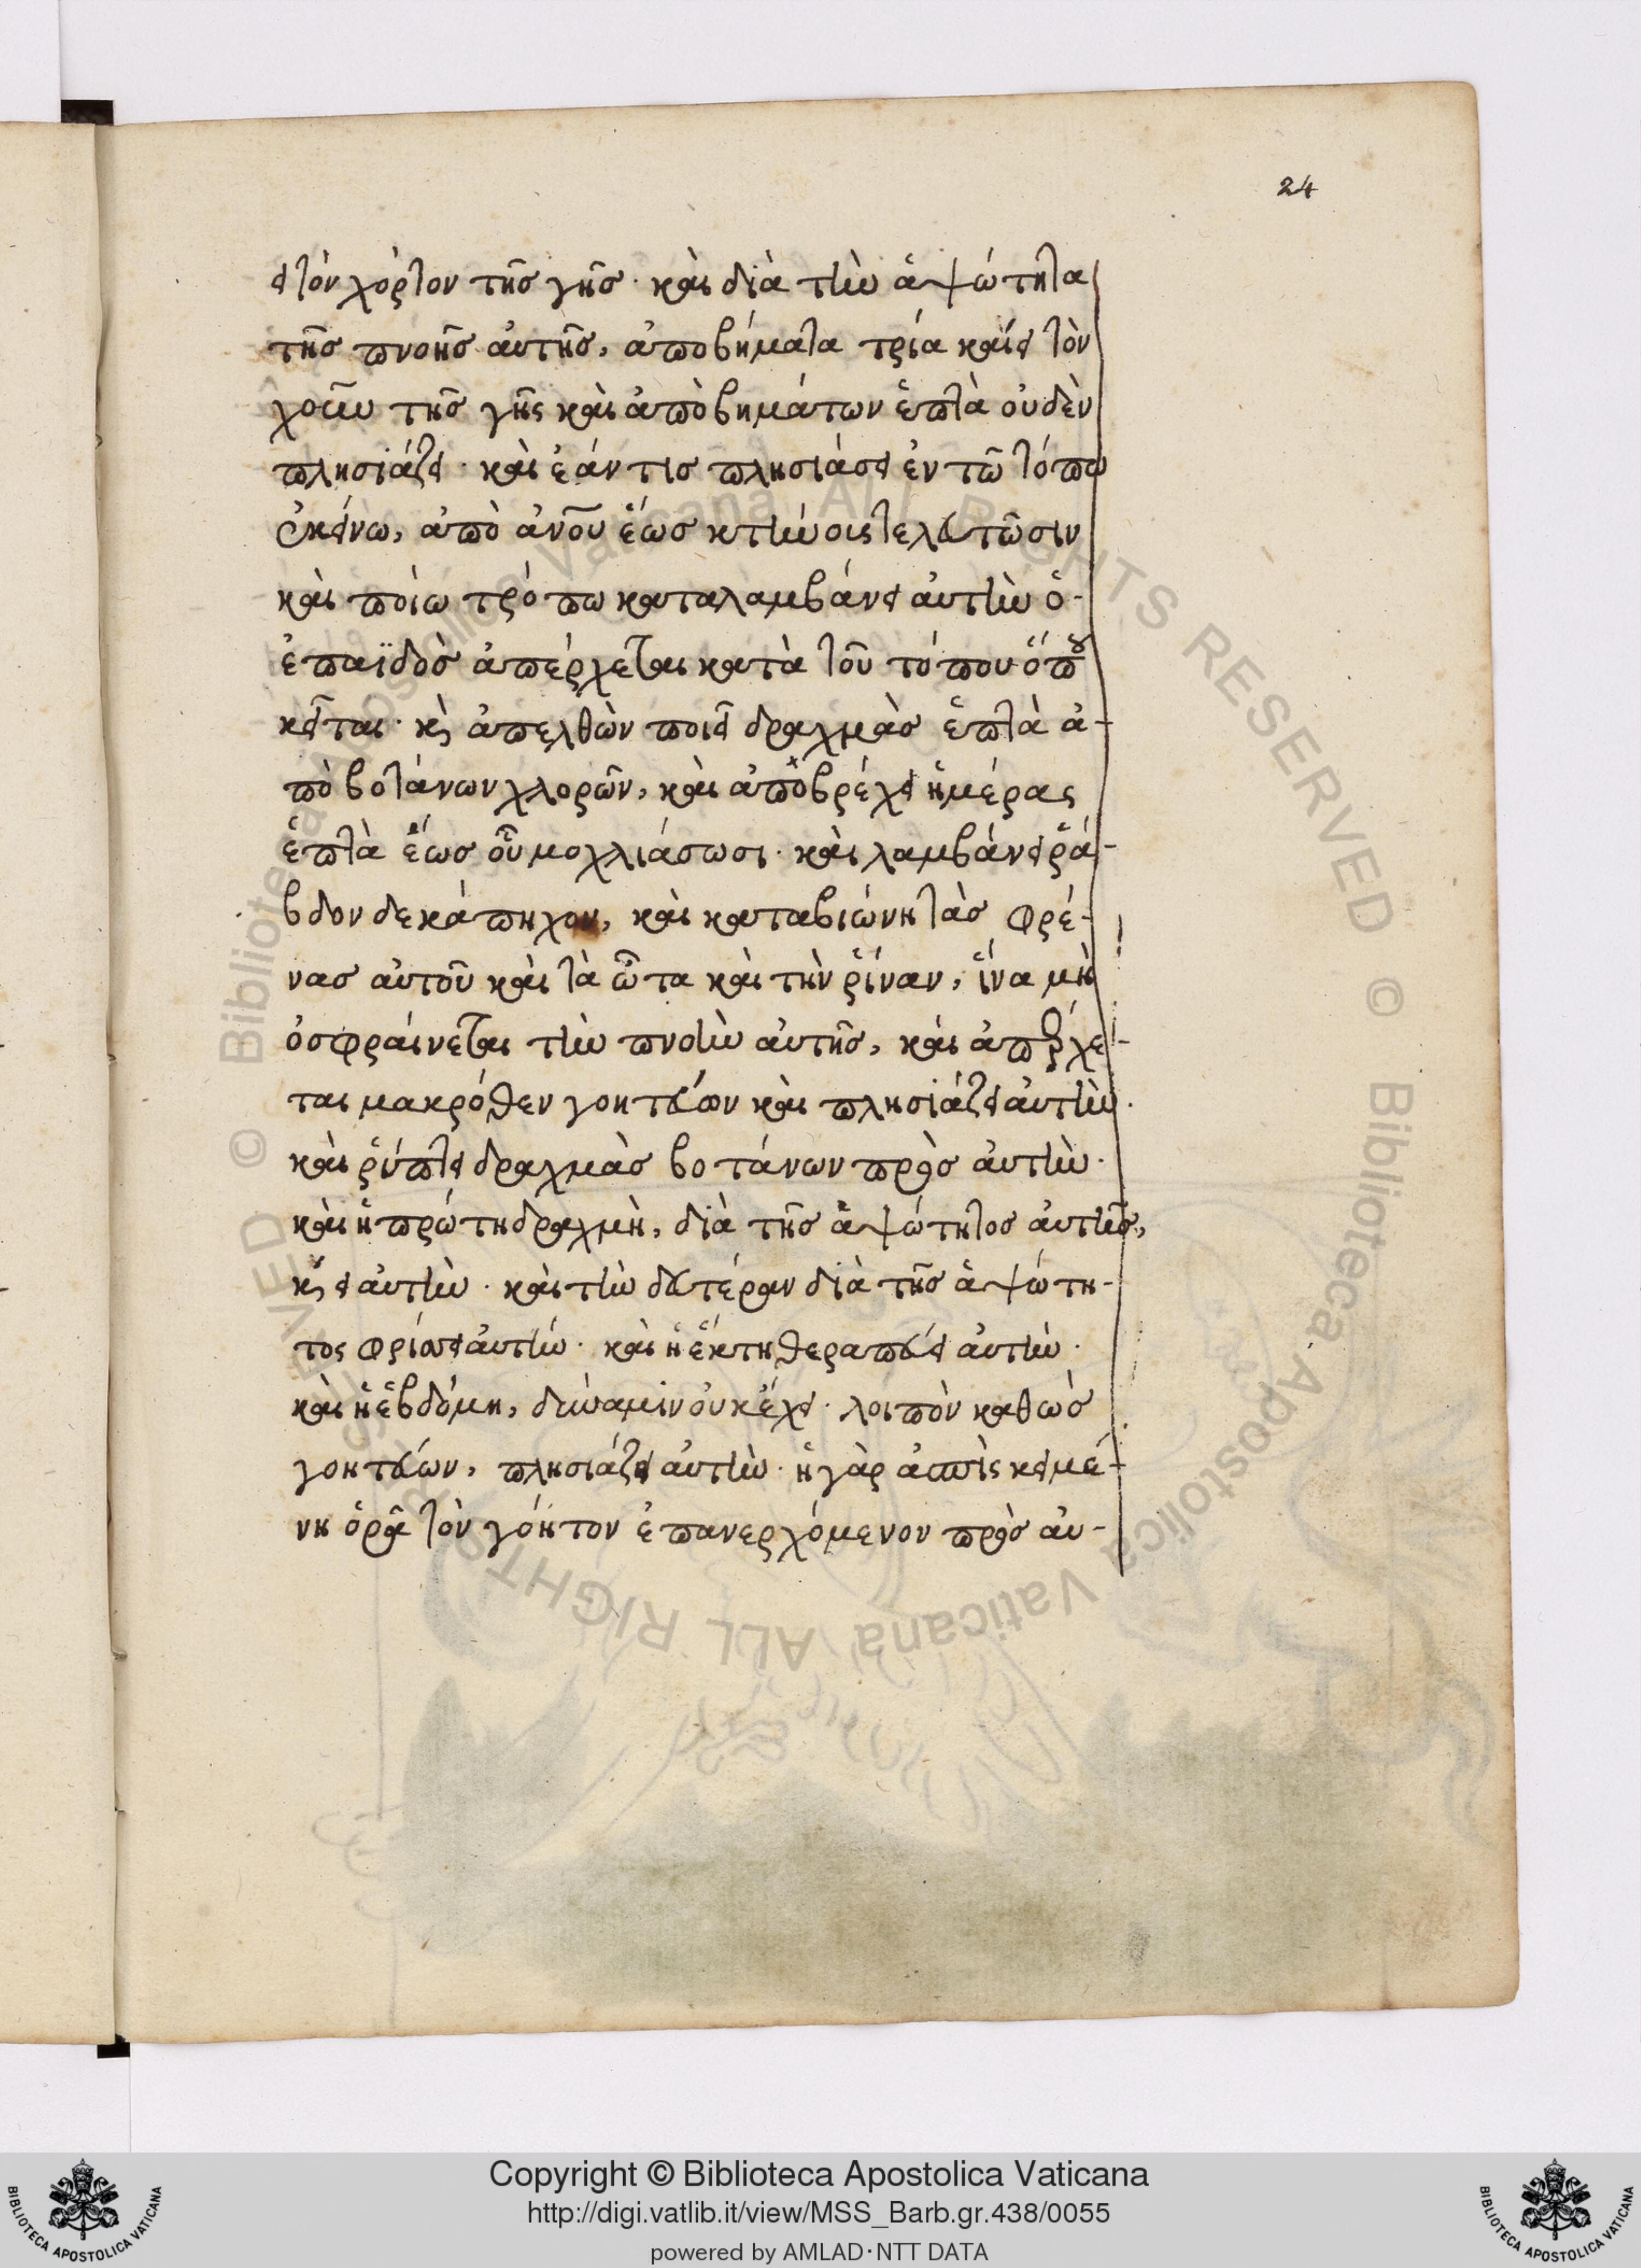 24
ει τὸν χόρτον τῆς γῆς· καὶ διὰ τὴν ἁψώτητα
τῆς πνοῆς αὐτῆς, ἀποβήματα τρία καίει τὸν
χοῦν τῆς γῆς καὶ ἀπὸ βημάτων ἑπτὰ οὐδὲν
πλησιάζει· καὶ ἐάν τις πλησιάσει ἐν τῶ τόπω
ἐκείνω, ἀπὸ ἀνου ἕως κτήνοις τελευτῶσιν
καὶ ποίω τρόπω καταλαμβάνει αὐτὴν ὁ-
ἐπαϊδὸς ἀπέρχεται κατὰ τοῦ τόπου ὅπου
κεῖται· κὶ ἀπελθὼν ποιεῖ δραχμὰς ἑπτὰ ἀ-
πὸ βοτάνων χλορῶν, καὶ ἀποβρέχει ἡμέρας
ἑπτὰ ἕως οὗ μοχλιάσωσι· καὶ λαμβάνει ῥά-
βδον δεκάπηχον, καὶ καταβιώνη τὰς φρέ-
νας αὐτοῦ καὶ τὰ ὦτα καὶ τὴν ῥίναν, ἵνα μὴ
ὀσφραίνεται τὴν πνοὴν αὐτῆς, καὶ ἀπέρχε-
ται μακρόθεν γοητεύων καὶ πλησιάζει αὐτήν·
καὶ ῥύπτει δραχμὰς βοτάνων πρὸς αὐτήν·
καὶ ἡ πρώτη δραχμὴ, διὰ τῆς ἁψώτητος αὐτῆς,
καίει αὐτήν· καὶ τὴν δευτέραν διὰ τῆς ἁψώτη-
τος φρίσει αὐτήν· καὶ ἡ ἕκτη θεραπεύει αὐτήν·
καὶ ἡ ἑβδόμη, δύναμιν οὐκ ἔχει· λοιπὸν καθὼς
γοητεύων, πλησιάζει αὐτήν· ἡ γὰρ ἀσπὶς κειμέ-
νη ὁρᾶ τὸν γόητον ἐπανερχόμενον πρὸς αὐ-
© Biblioteca Apostolica Vaticana ALL RIGHTS RESERVED © Biblioteca Apostolica Vaticana ALL RIGHTS RESERVED
Copyright © Biblioteca Apostolica Vaticana
http://digi.vatlib.it/view/MSS_Barb.gr.438/0055
powered by AMLAD·NTT DATA
BIBLIOTECA APOSTOLICA VATICANA
BIBLIOTECA APOSTOLICA VATICANA